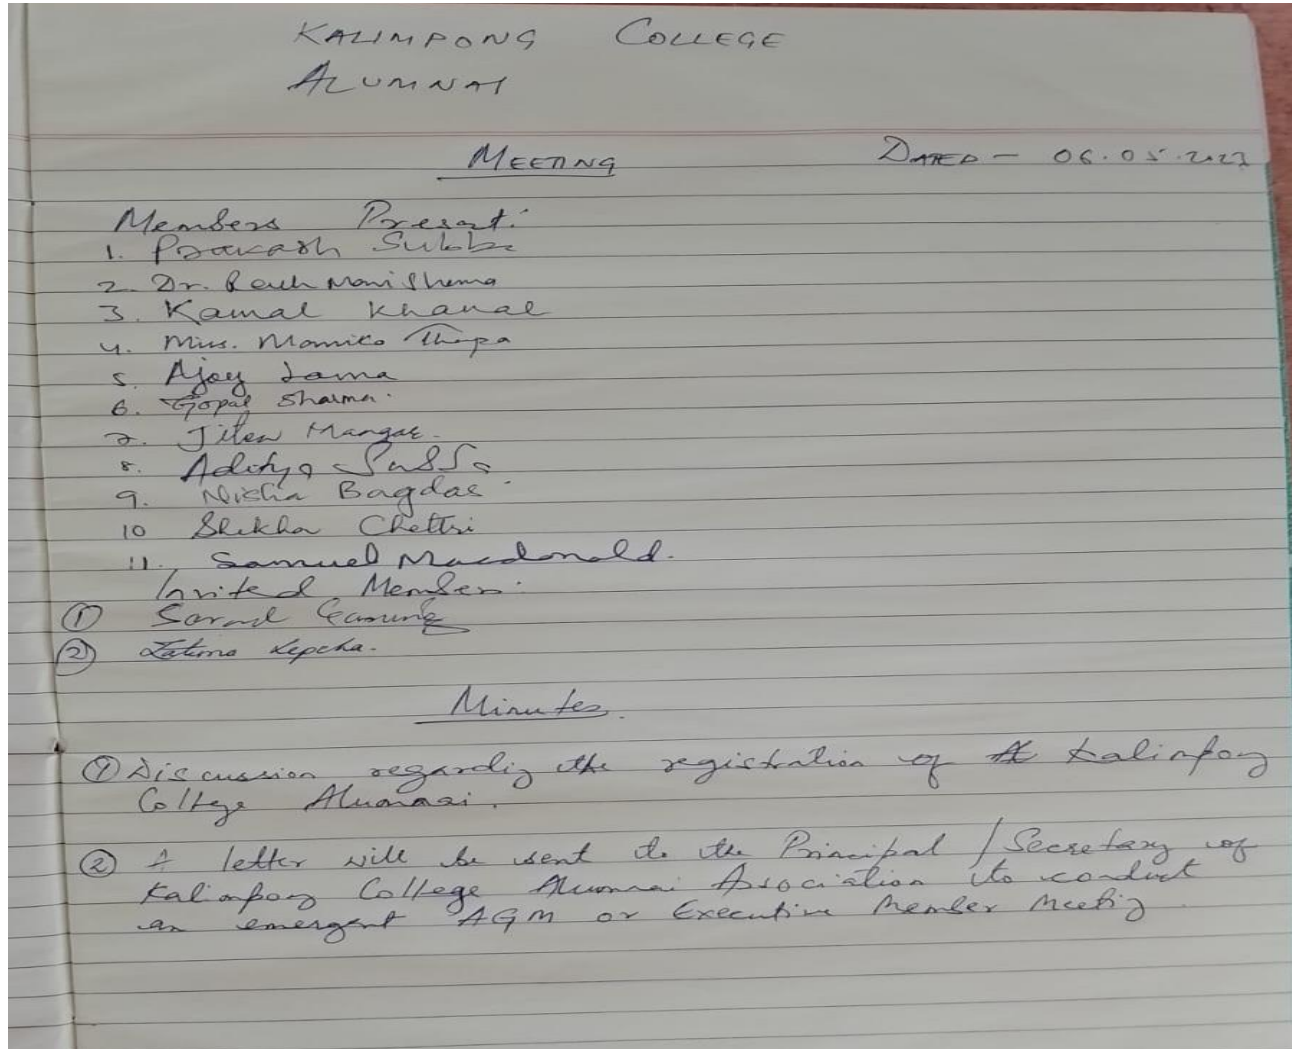 KALIMPONG COLLEGE
ALUMNAI
MEETING DATED - 06.05.2023
Members Present:
1. Prakash Subba
2. Dr. Mani Sharma
3. Kamal Khanal
4. Momiko Thapa
5. Ajoy Lama
6. Gopal Sharma.
7. Jiten Mangar.
8. Aditya Subba
9. Nisha Bagdas
10 Shikha Chettri
11. Samuel Macdonald.
Invited Member:
① Gazmer
② Lepcha.
Minutes.
① Discussion regarding the registration of Kalimpong
College Alumnai.
② A letter will be sent to the Principal / Secretary of
Kalimpong College Alumnai Association to conduct
an emergent AGM or Executive Member Meeting.